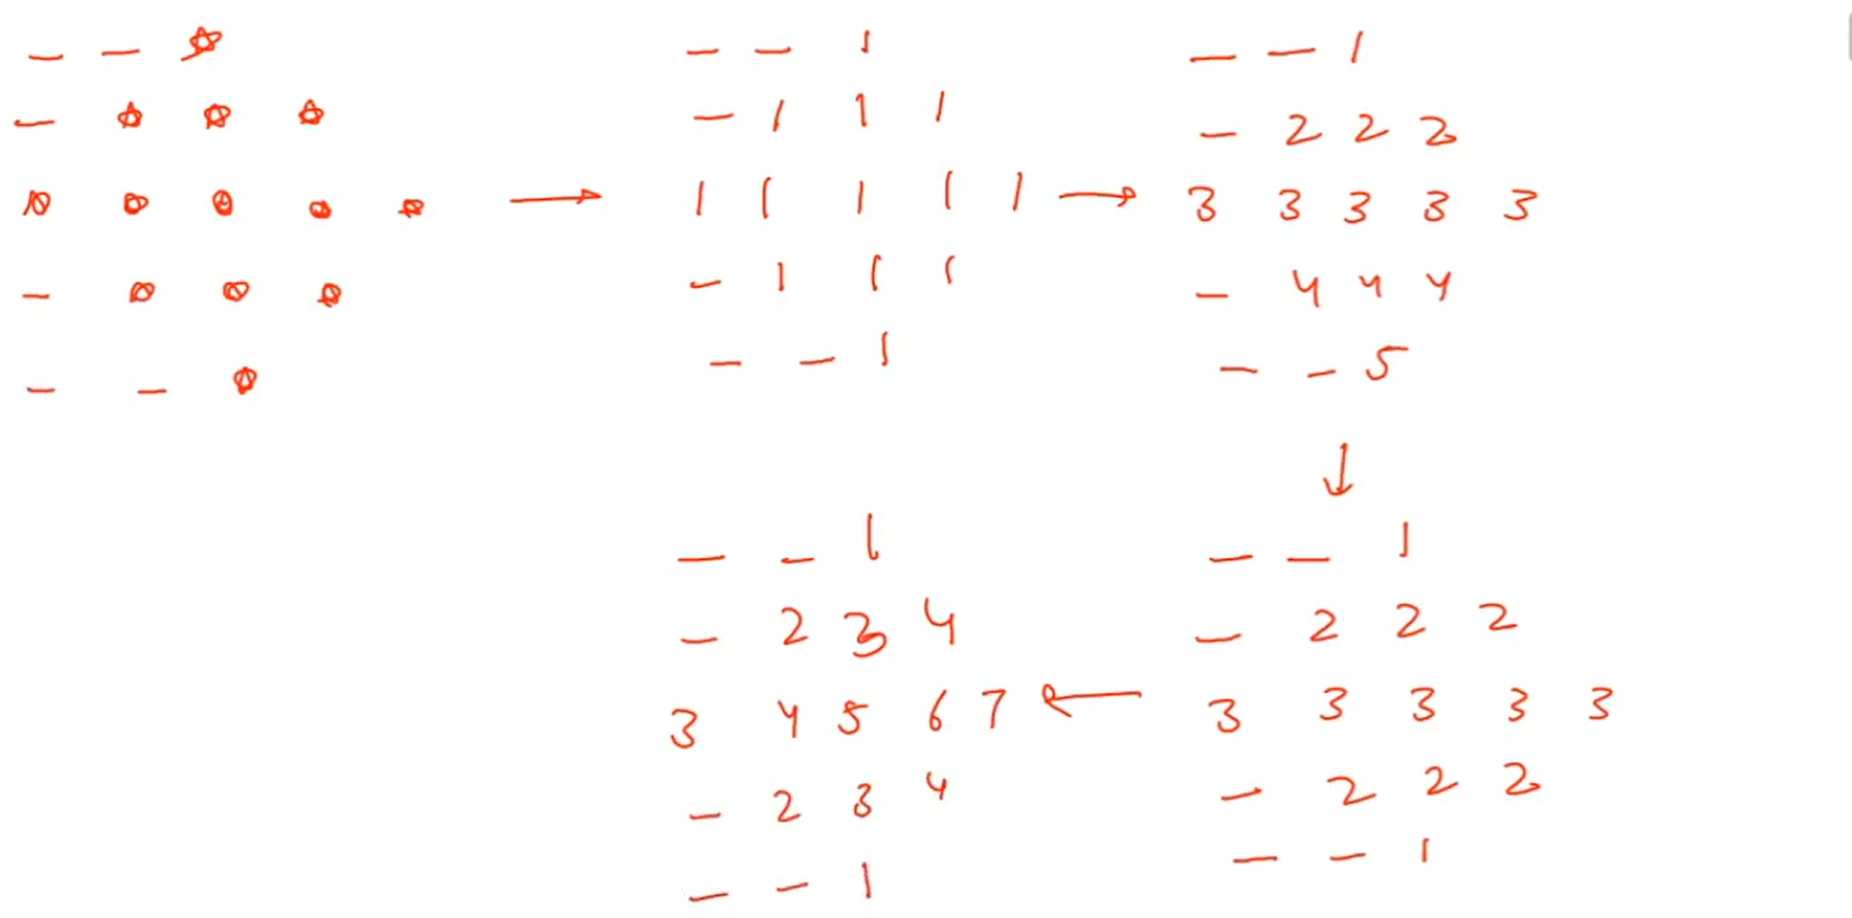 _ _ ☆
_ ☆ ☆ ☆
☆ ☆ ☆ ☆ ☆
_ ☆ ☆ ☆
_ _ ☆
→
_ _ 1
_ 1 1 1
1 1 1 1 1
_ 1 1 1
_ _ 1
→
_ _ 1
_ 2 2 2
3 3 3 3 3
_ 4 4 4
_ _ 5
↓
_ _ 1
_ 2 2 2
3 3 3 3 3
_ 2 2 2
_ _ 1
←
_ _ 1
_ 2 3 4
3 4 5 6 7
_ 2 3 4
_ _ 1